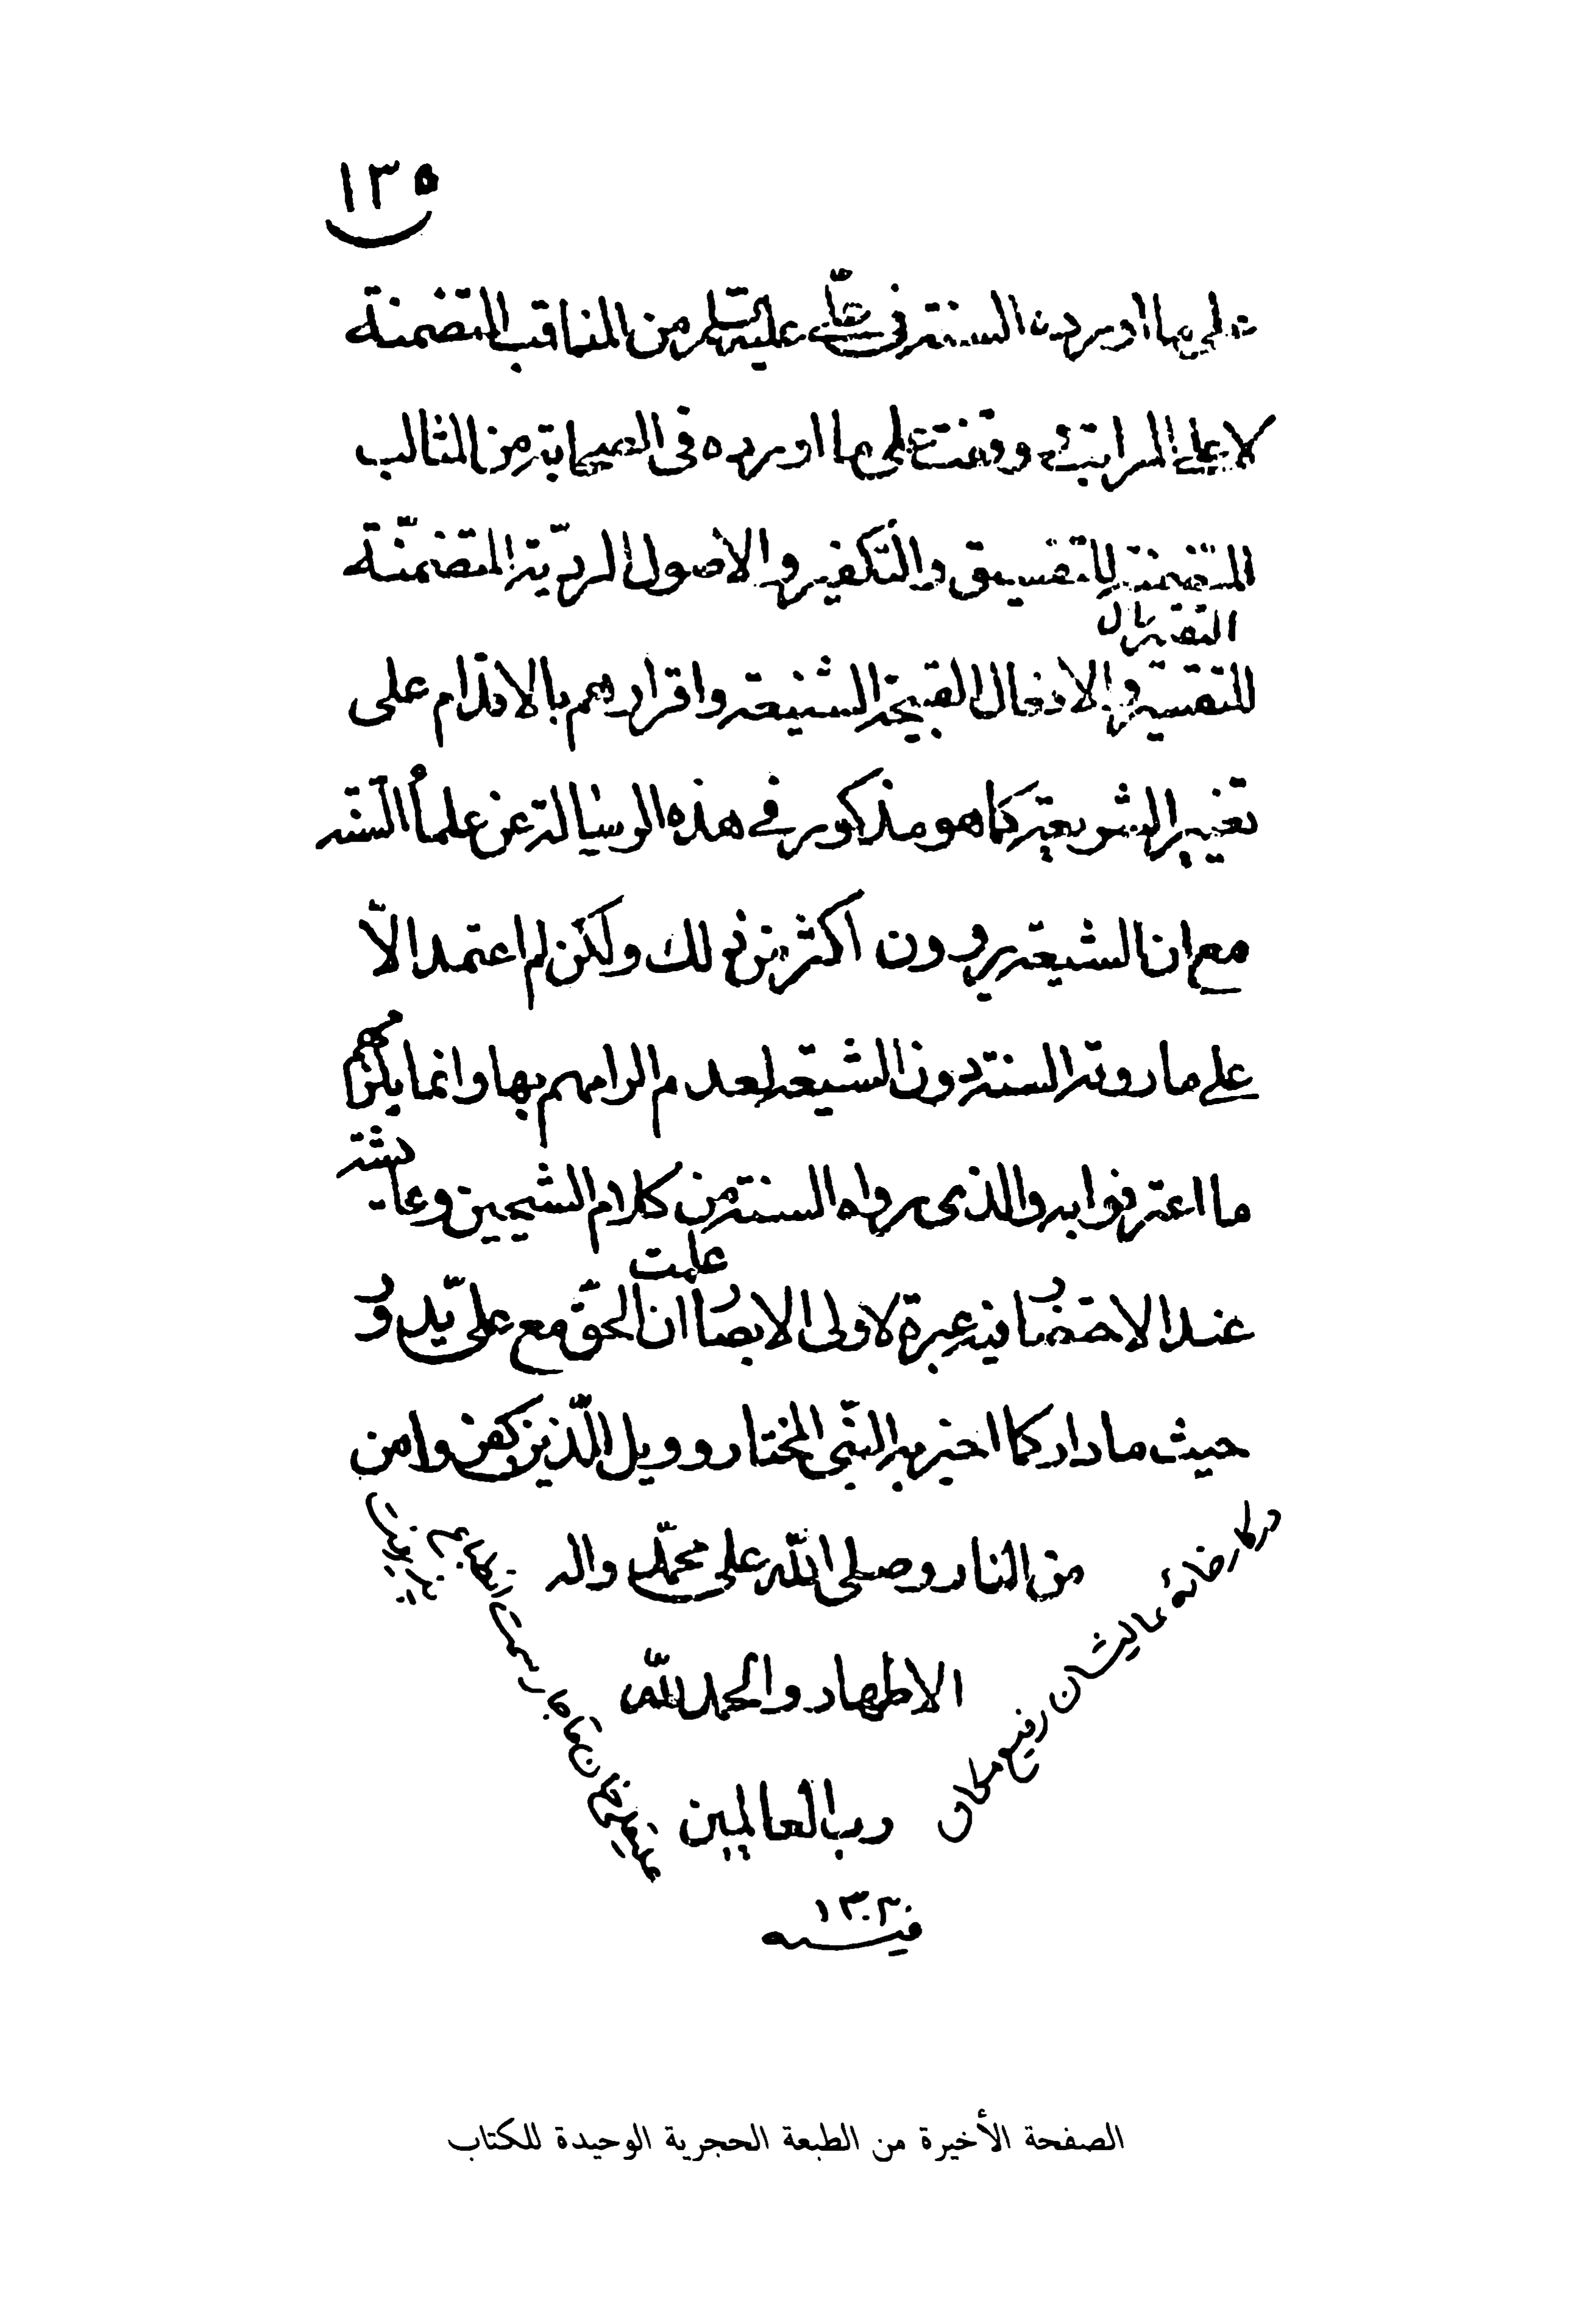 ١٣٥
على ما اوردت السنة فى علىّ عليه السلم من المناقب المتضمنة
لاعلى المراتب و وقفت على ما اورده فى الصحابة من المثالب
المتضمنة للتفسيق والتكفير والاصول الرديّة المتضمنّة
للتفسيق والافعال القبيحة الشنيعة واقرارهم بالاقدام على
تغيير الشريعة كما هو مذكور في هذه الرسالة عن علماء السنة
مع ان الشيعة يروون اكثر من ذلك ولكن لم اعتمد الاّ
على ما روته السنة دون الشيعة لعدم الزامهم بها وانما يلزمهم
ما اعترفوا به والذى رواه السنة من كلام الشيخين وعايشة
عند الاحتضار فيه عبرة لاولى الابصار علمت ان الحقّ مع علىّ يدور
حيث ما دار كما اخبر به النبّى المختار وويل الّذين كفروا من
من النار وصلى الله على محمّد واله
الاطهار والحمد لله
رب العالمين
دركارخانۀ عاليشان رفيع مكان
فى سنه ١٣٠٢
الصفحة الأخيرة من الطبعة الحجرية الوحيدة للكتاب